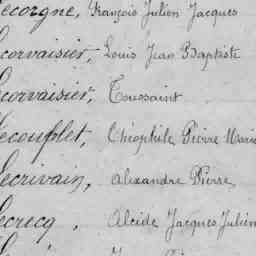 ecorgne, François Julien Jacques
ecorvaisier, Louis Jean Baptiste
ecorvaisier, Toussaint
ecouflet, Théophile Pierre Marie
ecrivain, Alexandre Pierre
ecrecq, Alcide Jacques Julien